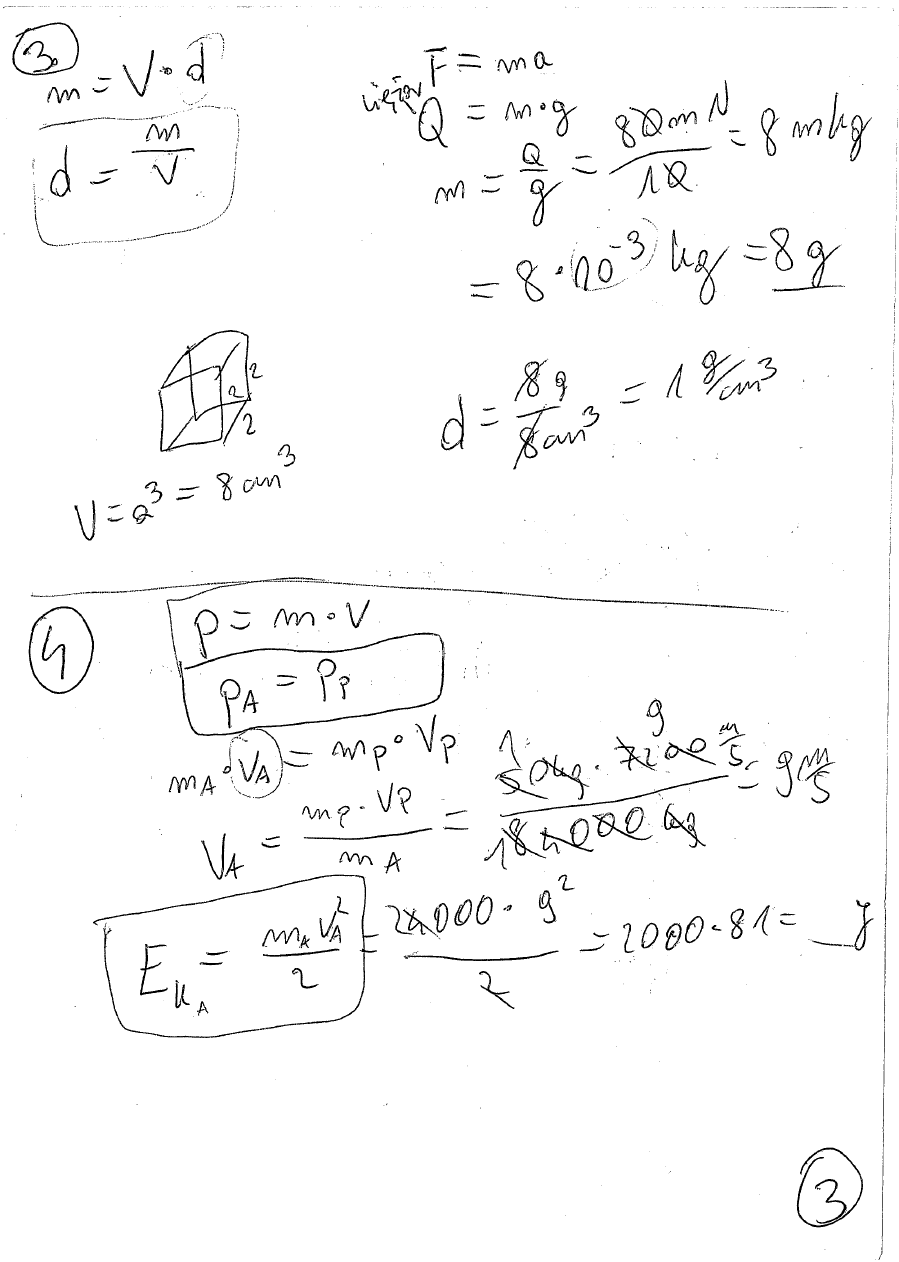 3.
m = V · d
d = m/V
F = ma
ciężar Q = m·g
m = Q/g = 80mN/10 = 8 mkg
= 8 · 10⁻³ kg = 8g
2 2 2
V = a³ = 8cm³
d = 8g/8cm³ = 1 g/cm³
4
p = m·V
pA = pp
mA · VA = mp · Vp
VA = mp · Vp / mA = 9 m/s
EkA = mA VA² / 2 = 4000 · 9² / 2 = 2000 · 81 = __J
3